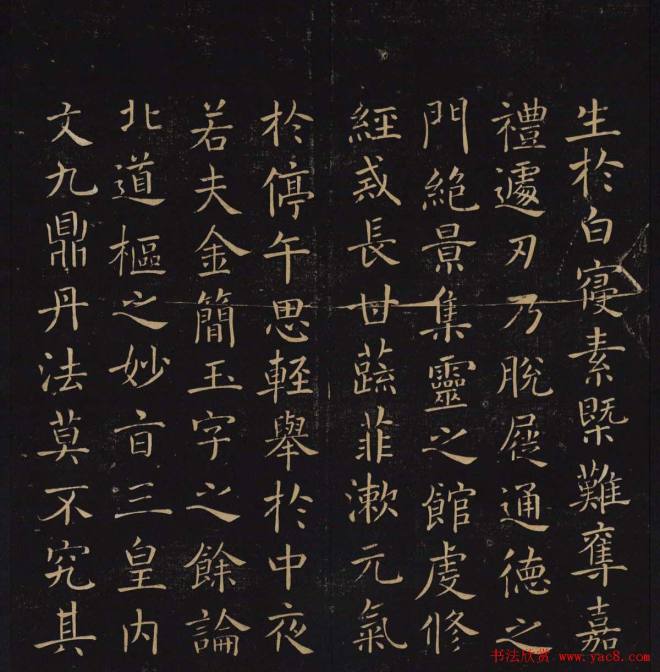 生於白素槩難奪嘉
禮遽及乃脫屣通德之
門絕景集靈之館虔修
經戒長甘蔬菲漱元氣
於停午思輕舉於中夜
若夫金簡玉字之餘論
北道樞之妙旨三皇內
文九鼎丹法莫不究其
书法欣赏 www.yac8.com